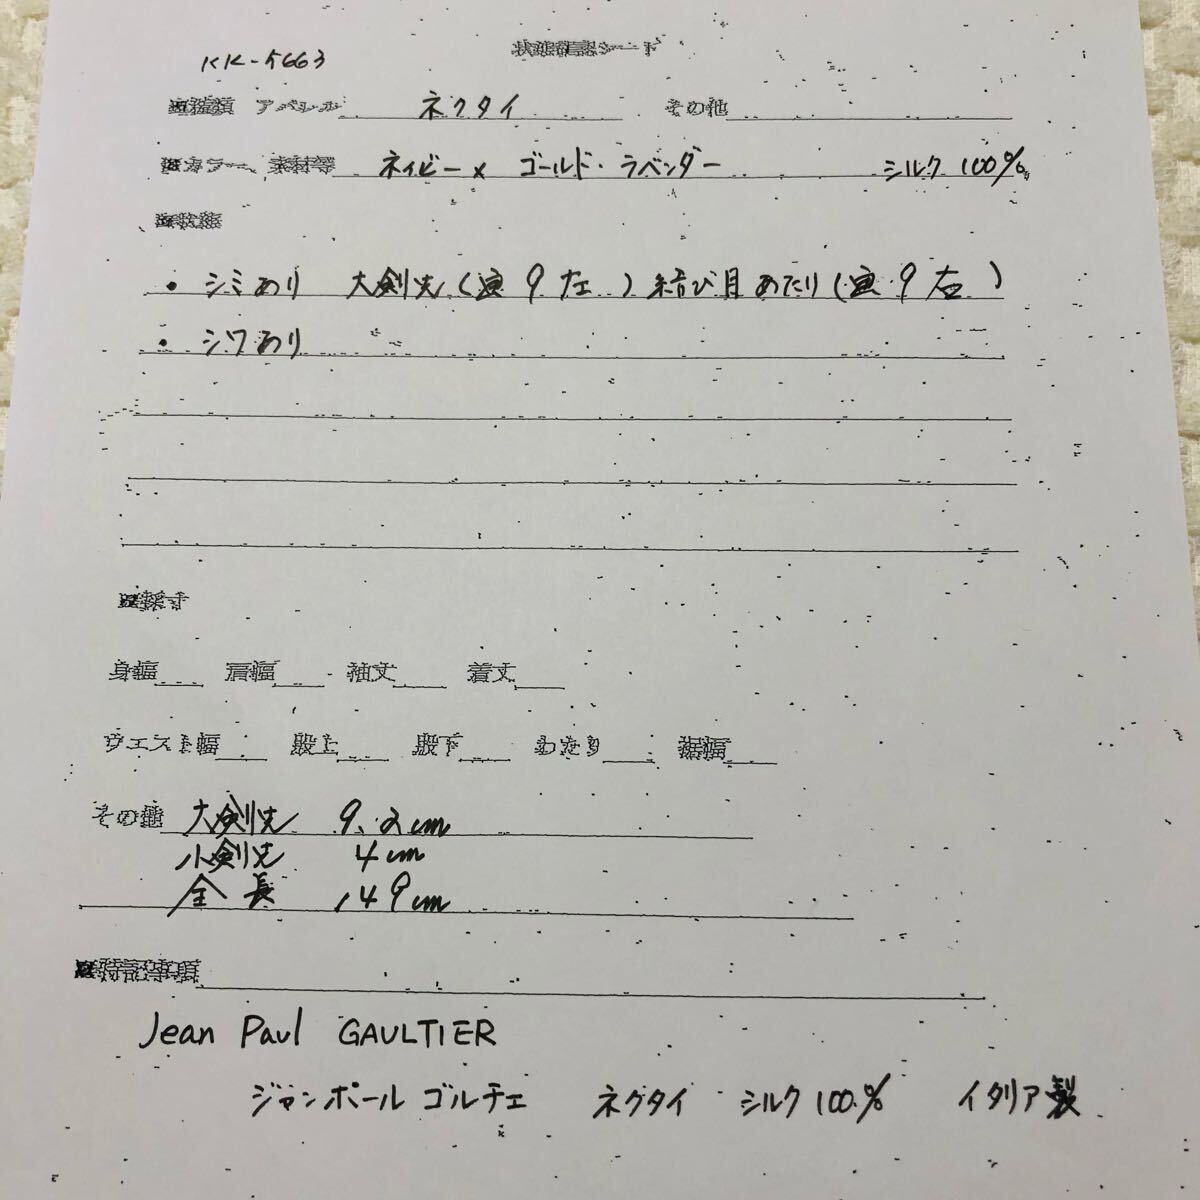 状態確認シート
KK-5663
■種類 アパレル ネクタイ その他
■カラー、素材等 ネイビー× ゴールド・ラベンダー シルク 100%
■状態
・シミあり 大剣先(画9左)結び目あたり(画9右)
・シワあり
■採寸
身幅 肩幅 袖丈 着丈
ウエスト幅 股上 股下 わたり 裾幅
その他 大剣先 9.2cm
小剣先 4cm
全長 149cm
■特記事項
Jean Paul GAULTIER
ジャンポール ゴルチェ ネクタイ シルク 100% イタリア製